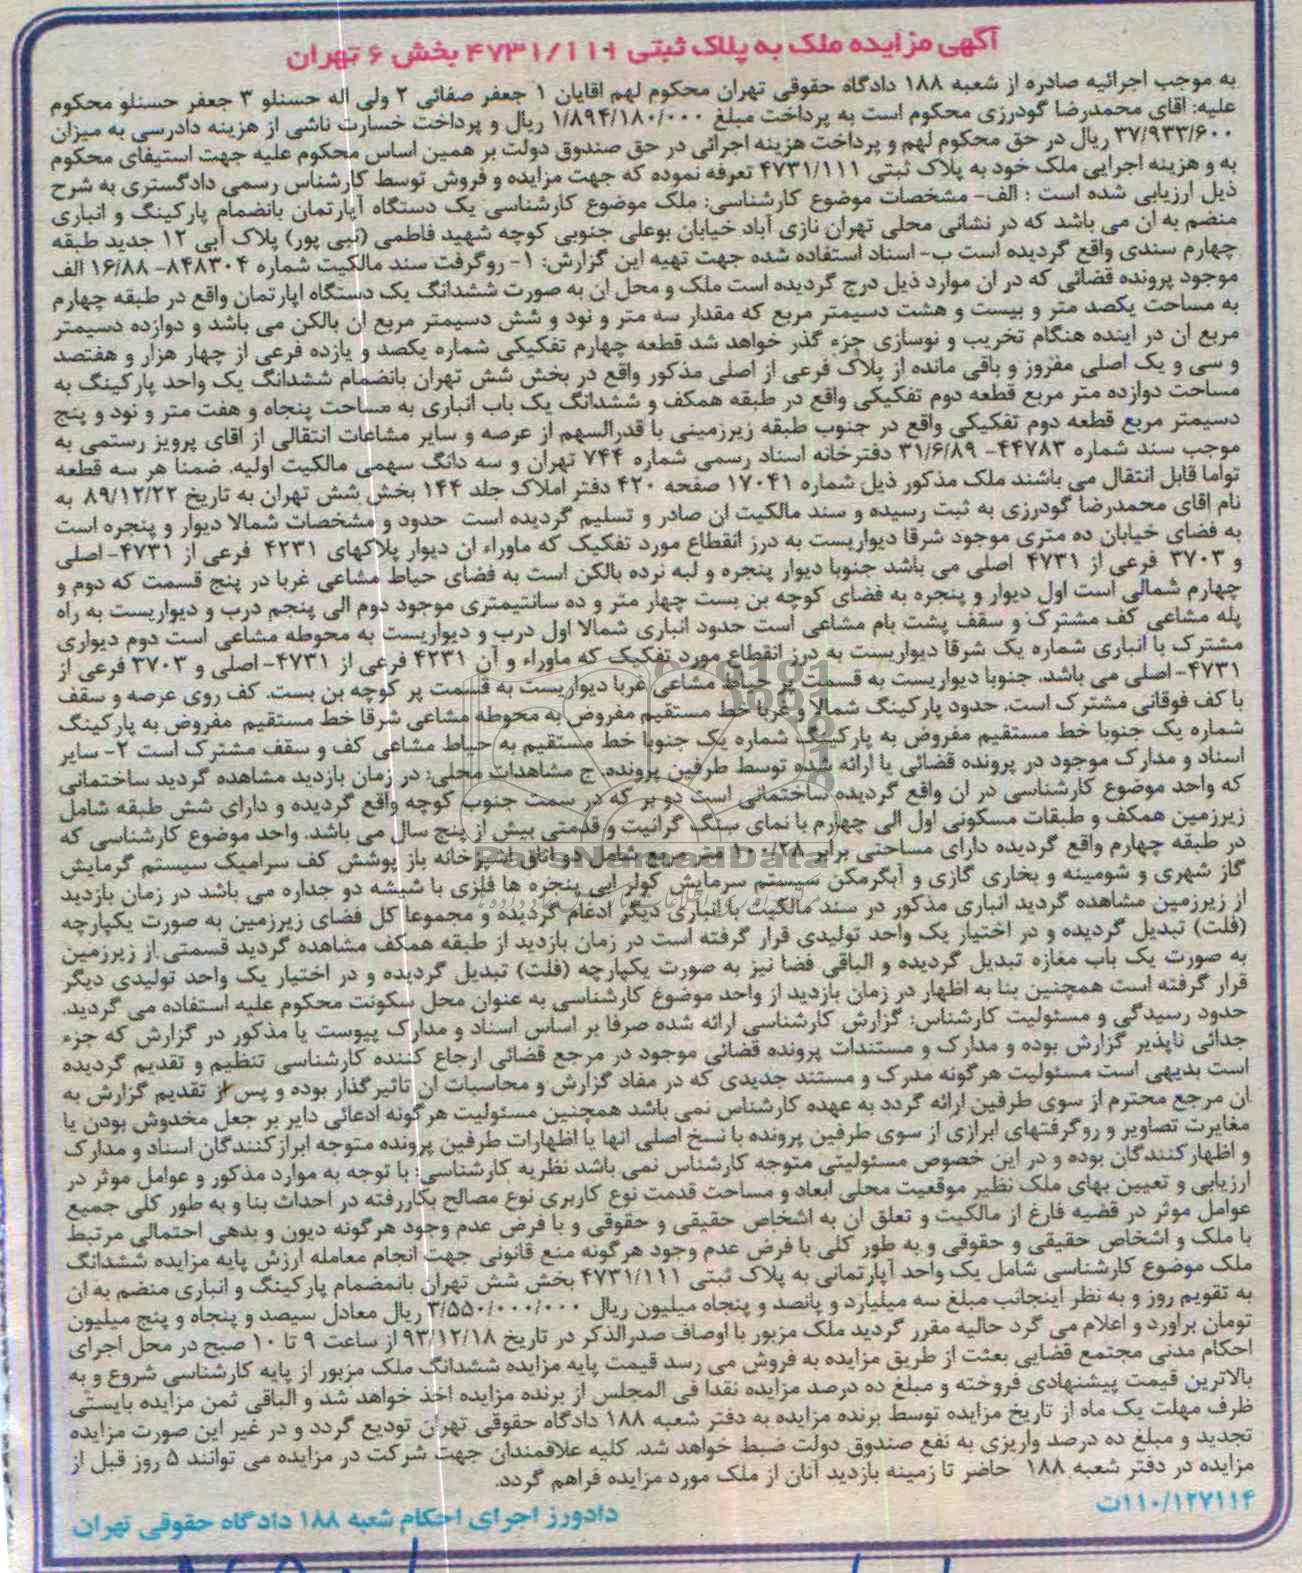 آگهی مزایده ملک به پلاک ثبتی ۴۷۳۱/۱۱۱ بخش ۶ تهران
به موجب اجرائیه صادره از شعبه ۱۸۸ دادگاه حقوقی تهران محکوم لهم اقایان ۱ جعفر صفائی ۲ ولی اله حسنلو ۳ جعفر حسنلو محکوم
علیه: اقای محمدرضا گودرزی محکوم است به پرداخت مبلغ ۱/۸۹۴/۱۸۰/۰۰۰ ریال و پرداخت خسارت ناشی از هزینه دادرسی به میزان
۳۷/۹۳۳/۶۰۰ ریال در حق محکوم لهم و پرداخت هزینه اجرائی در حق صندوق دولت بر همین اساس محکوم علیه جهت استیفای محکوم
به و هزینه اجرایی ملک خود به پلاک ثبتی ۴۷۳۱/۱۱۱ تعرفه نموده که جهت مزایده و فروش توسط کارشناس رسمی دادگستری به شرح
ذیل ارزیابی شده است : الف- مشخصات موضوع کارشناسی: ملک موضوع کارشناسی یک دستگاه آپارتمان بانضمام پارکینگ و انباری
منضم به ان می باشد که در نشانی محلی تهران نازی آباد خیابان بوعلی جنوبی کوچه شهید فاطمی (نبی پور) پلاک ابی ۱۲ جدید طبقه
چهارم سندی واقع گردیده است ب- اسناد استفاده شده جهت تهیه این گزارش: ۱- روگرفت سند مالکیت شماره ۸۴۸۳۰۴- ۱۶/۸۸ الف
موجود پرونده قضائی که در ان موارد ذیل درج گردیده است ملک و محل ان به صورت ششدانگ یک دستگاه اپارتمان واقع در طبقه چهارم
به مساحت یکصد متر و بیست و هشت دسیمتر مربع که مقدار سه متر و نود و شش دسیمتر مربع ان بالکن می باشد و دوازده دسیمتر
مربع ان در اینده هنگام تخریب و نوسازی جزء گذر خواهد شد قطعه چهارم تفکیکی شماره یکصد و یازده فرعی از چهار هزار و هفتصد
و سی و یک اصلی مفروز و باقی مانده از پلاک فرعی از اصلی مذکور واقع در بخش شش تهران بانضمام ششدانگ یک واحد پارکینگ به
مساحت دوازده متر مربع قطعه دوم تفکیکی واقع در طبقه همکف و ششدانگ یک باب انباری به مساحت پنجاه و هفت متر و نود و پنج
دسیمتر مربع قطعه دوم تفکیکی واقع در جنوب طبقه زیرزمینی با قدرالسهم از عرصه و سایر مشاعات انتقالی از اقای پرویز رستمی به
موجب سند شماره ۴۴۷۸۳- ۳۱/۶/۸۹ دفترخانه اسناد رسمی شماره ۷۴۴ تهران و سه دانگ سهمی مالکیت اولیه. ضمنا هر سه قطعه
تواما قابل انتقال می باشند ملک مذکور ذیل شماره ۱۷۰۴۱ صفحه ۴۲۰ دفتر املاک جلد ۱۴۴ بخش شش تهران به تاریخ ۸۹/۱۲/۲۲ به
نام اقای محمدرضا گودرزی به ثبت رسیده و سند مالکیت ان صادر و تسلیم گردیده است حدود و مشخصات شمالا دیوار و پنجره است
به فضای خیابان ده متری موجود شرقا دیواریست به درز انقطاع مورد تفکیک که ماوراء ان دیوار پلاکهای ۴۲۳۱ فرعی از ۴۷۳۱- اصلی
و ۳۷۰۳ فرعی از ۴۷۳۱ اصلی می باشد جنوبا دیوار پنجره و لبه نرده بالکن است به فضای حیاط مشاعی غربا در پنج قسمت که دوم و
چهارم شمالی است اول دیوار و پنجره به فضای کوچه بن بست چهار متر و ده سانتیمتری موجود دوم الی پنجم درب و دیواریست به راه
پله مشاعی کف مشترک و سقف پشت بام مشاعی است حدود انباری شمالا اول درب و دیواریست به محوطه مشاعی است دوم دیواری
مشترک با انباری شماره یک شرقا دیواریست به درز انقطاع مورد تفکیک که ماوراء و آن ۴۲۳۱ فرعی از ۴۷۳۱- اصلی و ۳۷۰۳ فرعی از
۴۷۳۱- اصلی می باشد. جنوبا دیواریست به قسمت پر حیاط مشاعی غربا دیواریست به قسمت پر کوچه بن بست. کف روی عرصه و سقف
با کف فوقانی مشترک است. حدود پارکینگ شمالا و غربا خط مستقیم مفروض به محوطه مشاعی شرقا خط مستقیم مفروض به پارکینگ
شماره یک جنوبا خط مستقیم مفروض به پارکینگ شماره یک جنوبا خط مستقیم به حیاط مشاعی کف و سقف مشترک است ۲- سایر
اسناد و مدارک موجود در پرونده قضائی یا ارائه شده توسط طرفین پرونده. ج مشاهدات محلی: در زمان بازدید مشاهده گردید ساختمانی
که واحد موضوع کارشناسی در ان واقع گردیده ساختمانی است دو بر که در سمت جنوب کوچه واقع گردیده و دارای شش طبقه شامل
زیرزمین همکف و طبقات مسکونی اول الی چهارم با نمای سنگ گرانیت و قدمتی بیش از پنج سال می باشد. واحد موضوع کارشناسی که
در طبقه چهارم واقع گردیده دارای مساحتی برابر ۱۰۰/۲۸ شامل دو اتاق اشپزخانه باز پوشش کف سرامیک سیستم گرمایش
گاز شهری و شومینه و بخاری گازی و آبگرمکن سیستم سرمایش کولر ابی پنجره ها فلزی با شیشه دو جداره می باشد در زمان بازدید
از زیرزمین مشاهده گردید انباری مذکور در سند مالکیت با انباری دیگر ادغام گردیده و مجموعا کل فضای زیرزمین به صورت یکپارچه
(فلت) تبدیل گردیده و در اختیار یک واحد تولیدی قرار گرفته است در زمان بازدید از طبقه همکف مشاهده گردید قسمتی از زیرزمین
به صورت یک باب مغازه تبدیل گردیده و الباقی فضا نیز به صورت یکپارچه (فلت) تبدیل گردیده و در اختیار یک واحد تولیدی دیگر
قرار گرفته است همچنین بنا به اظهار در زمان بازدید از واحد موضوع کارشناسی به عنوان محل سکونت محکوم علیه استفاده می گردید.
حدود رسیدگی و مسئولیت کارشناس: گزارش کارشناسی ارائه شده صرفا بر اساس اسناد و مدارک پیوست یا مذکور در گزارش که جزء
جدائی ناپذیر گزارش بوده و مدارک و مستندات پرونده قضائی موجود در مرجع قضائی ارجاع کننده کارشناسی تنظیم و تقدیم گردیده
است بدیهی است مسئولیت هرگونه مدرک و مستند جدیدی که در مفاد گزارش و محاسبات ان تاثیرگذار بوده و پس از تقدیم گزارش به
ان مرجع محترم از سوی طرفین ارائه گردد به عهده کارشناس نمی باشد همچنین مسئولیت هرگونه ادعائی دایر بر جعل مخدوش بودن یا
مغایرت تصاویر و روگرفتهای ابرازی از سوی طرفین پرونده با نسخ اصلی انها یا اظهارات طرفین پرونده متوجه ابرازکنندگان اسناد و مدارک
و اظهارکنندگان بوده و در این خصوص مسئولیتی متوجه کارشناس نمی باشد نظریه کارشناسی: با توجه به موارد مذکور و عوامل موثر در
ارزیابی و تعیین بهای ملک نظیر موقعیت محلی ابعاد و مساحت قدمت نوع کاربری نوع مصالح بکاررفته در احداث بنا و به طور کلی جمیع
عوامل موثر در قضیه فارغ از مالکیت و تعلق ان به اشخاص حقیقی و حقوقی و با فرض عدم وجود هرگونه دیون و بدهی احتمالی مرتبط
با ملک و اشخاص حقیقی و حقوقی و به طور کلی با فرض عدم وجود هرگونه منع قانونی جهت انجام معامله ارزش پایه مزایده ششدانگ
ملک موضوع کارشناسی شامل یک واحد آپارتمانی به پلاک ثبتی ۴۷۳۱/۱۱۱ بخش شش تهران بانمضمام پارکینگ و انباری منضم به ان
به تقویم روز و به نظر اینجانب مبلغ سه میلیارد و پانصد و پنجاه میلیون ریال ۳/۵۵۰/۰۰۰/۰۰۰ ریال معادل سیصد و پنجاه و پنج میلیون
تومان براورد و اعلام می گرد حالیه مقرر گردید ملک مزبور با اوصاف صدرالذکر در تاریخ ۹۳/۱۲/۱۸ از ساعت ۹ تا ۱۰ صبح در محل اجرای
احکام مدنی مجتمع قضایی بعثت از طریق مزایده به فروش می رسد قیمت پایه مزایده ششدانگ ملک مزبور از پایه کارشناسی شروع و به
بالاترین قیمت پیشنهادی فروخته و مبلغ ده درصد مزایده نقدا فی المجلس از برنده مزایده اخذ خواهد شد و الباقی ثمن مزایده بایستی
ظرف مهلت یک ماه از تاریخ مزایده توسط برنده مزایده به دفتر شعبه ۱۸۸ دادگاه حقوقی تهران تودیع گردد و در غیر این صورت مزایده
تجدید و مبلغ ده درصد واریزی به نفع صندوق دولت ضبط خواهد شد. کلیه علاقمندان جهت شرکت در مزایده می توانند ۵ روز قبل از
مزایده در دفتر شعبه ۱۸۸ حاضر تا زمینه بازدید آنان از ملک مورد مزایده فراهم گردد.
۱۱۰/۱۲۷۱۱۴ت
دادورز اجرای احکام شعبه ۱۸۸ دادگاه حقوقی تهران
ParsNamadData